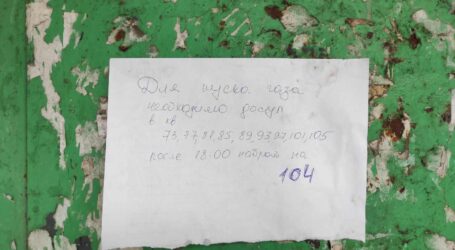 Для пуска газа
необходимо доступ
в кв
73, 77, 81, 85, 89, 93, 97, 101, 105
после 18:00 на
104